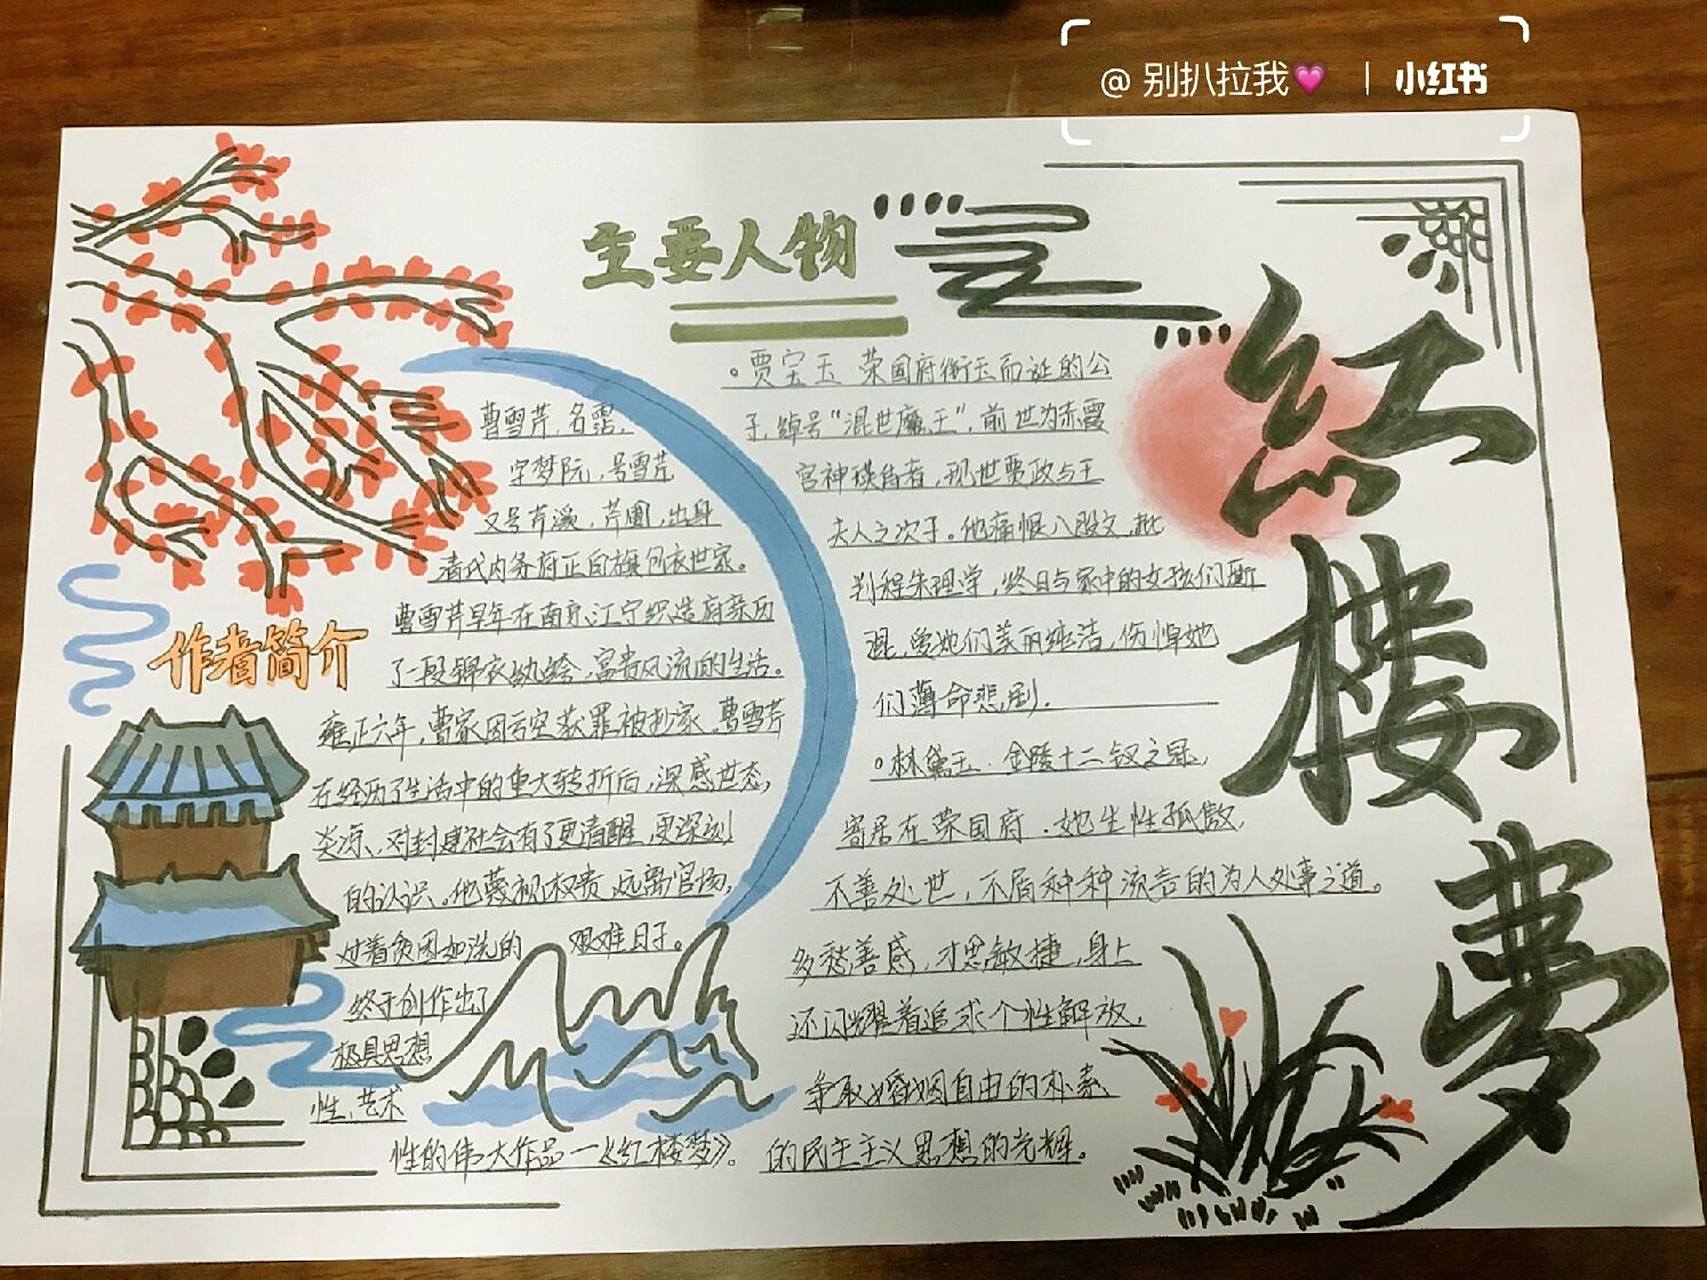 @ 别扒拉我 | 小红书
红楼梦
主要人物
。贾宝玉 荣国府衔玉而诞的公
子,绰号"混世魔王",前世为赤霞
宫神瑛侍者,现世贾政与王
夫人之次子。他痛恨八股文,批
判程朱理学,终日与家中的女孩们厮
混,爱她们美丽纯洁,伤悼她
们薄命悲剧.
。林黛玉.金陵十二钗之冠,
寄居在荣国府.她生性孤傲,
不善处世,不屑种种流言的为人处事之道。
多愁善感,才思敏捷,身上
还闪耀着追求个性解放,
争取婚姻自由的朴素
的民主主义思想的光辉。
作者简介
曹雪芹,名霑,
字梦阮,号雪芹
又号芹溪,芹圃,出身
清代内务府正白旗包衣世家。
曹雪芹早年在南京江宁织造府亲历
了一段锦衣纨绔、富贵风流的生活。
雍正六年,曹家因亏空获罪被抄家,曹雪芹
在经历了生活中的重大转折后,深感世态,
炎凉、对封建社会有了更清醒,更深刻
的认识。他蔑视权贵,远离官场,
过着贫困如洗的 艰难日子。
终于创作出了
极具思想
性、艺术
性的伟大作品—《红楼梦》。